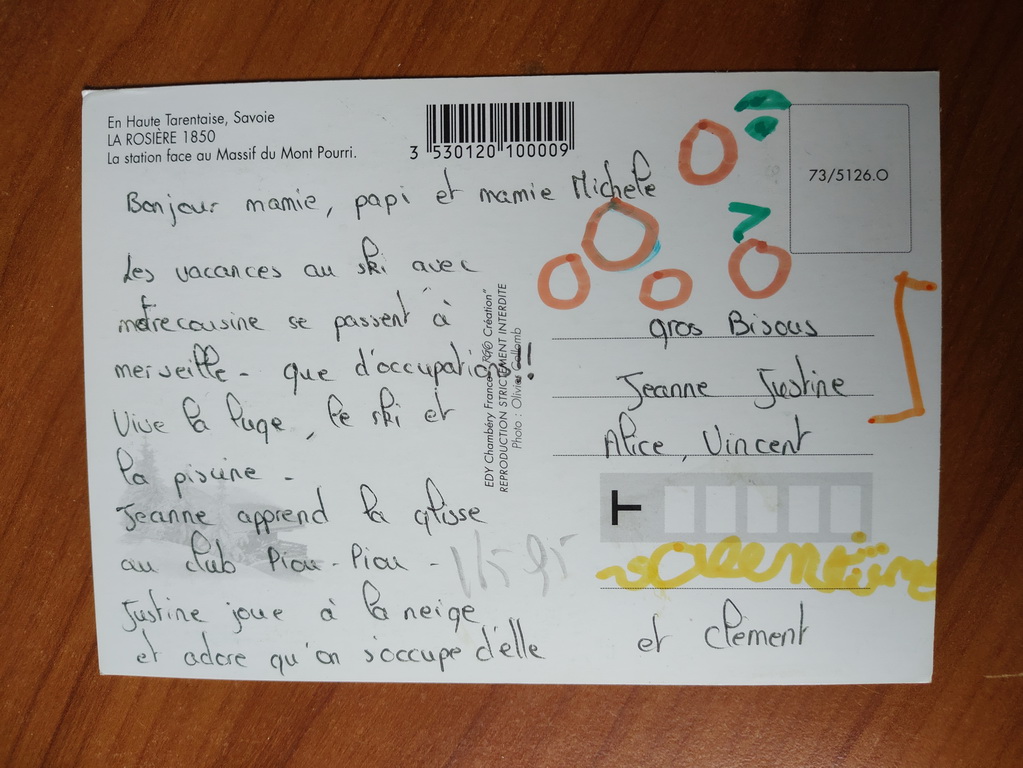 En Haute Tarentaise, Savoie
LA ROSIÈRE 1850
La station face au Massif du Mont Pourri.
3 530120 100009
73/5126.O
Bonjour mamie, papi et mamie Michele
Les vacances au ski avec
notre cousine se passent à
merveille - que d'occupations!!
Vive la luge, le ski et
la piscine -
Jeanne apprend la glisse
au club Piou-Piou -
Justine joue à la neige
et adore qu'on s'occupe d'elle
EDY Chambéry France "Création"
REPRODUCTION STRICTEMENT INTERDITE
Photo : Olivier Collomb
gros Bisous
Jeanne Justine
Alice, Vincent
T
et Clément